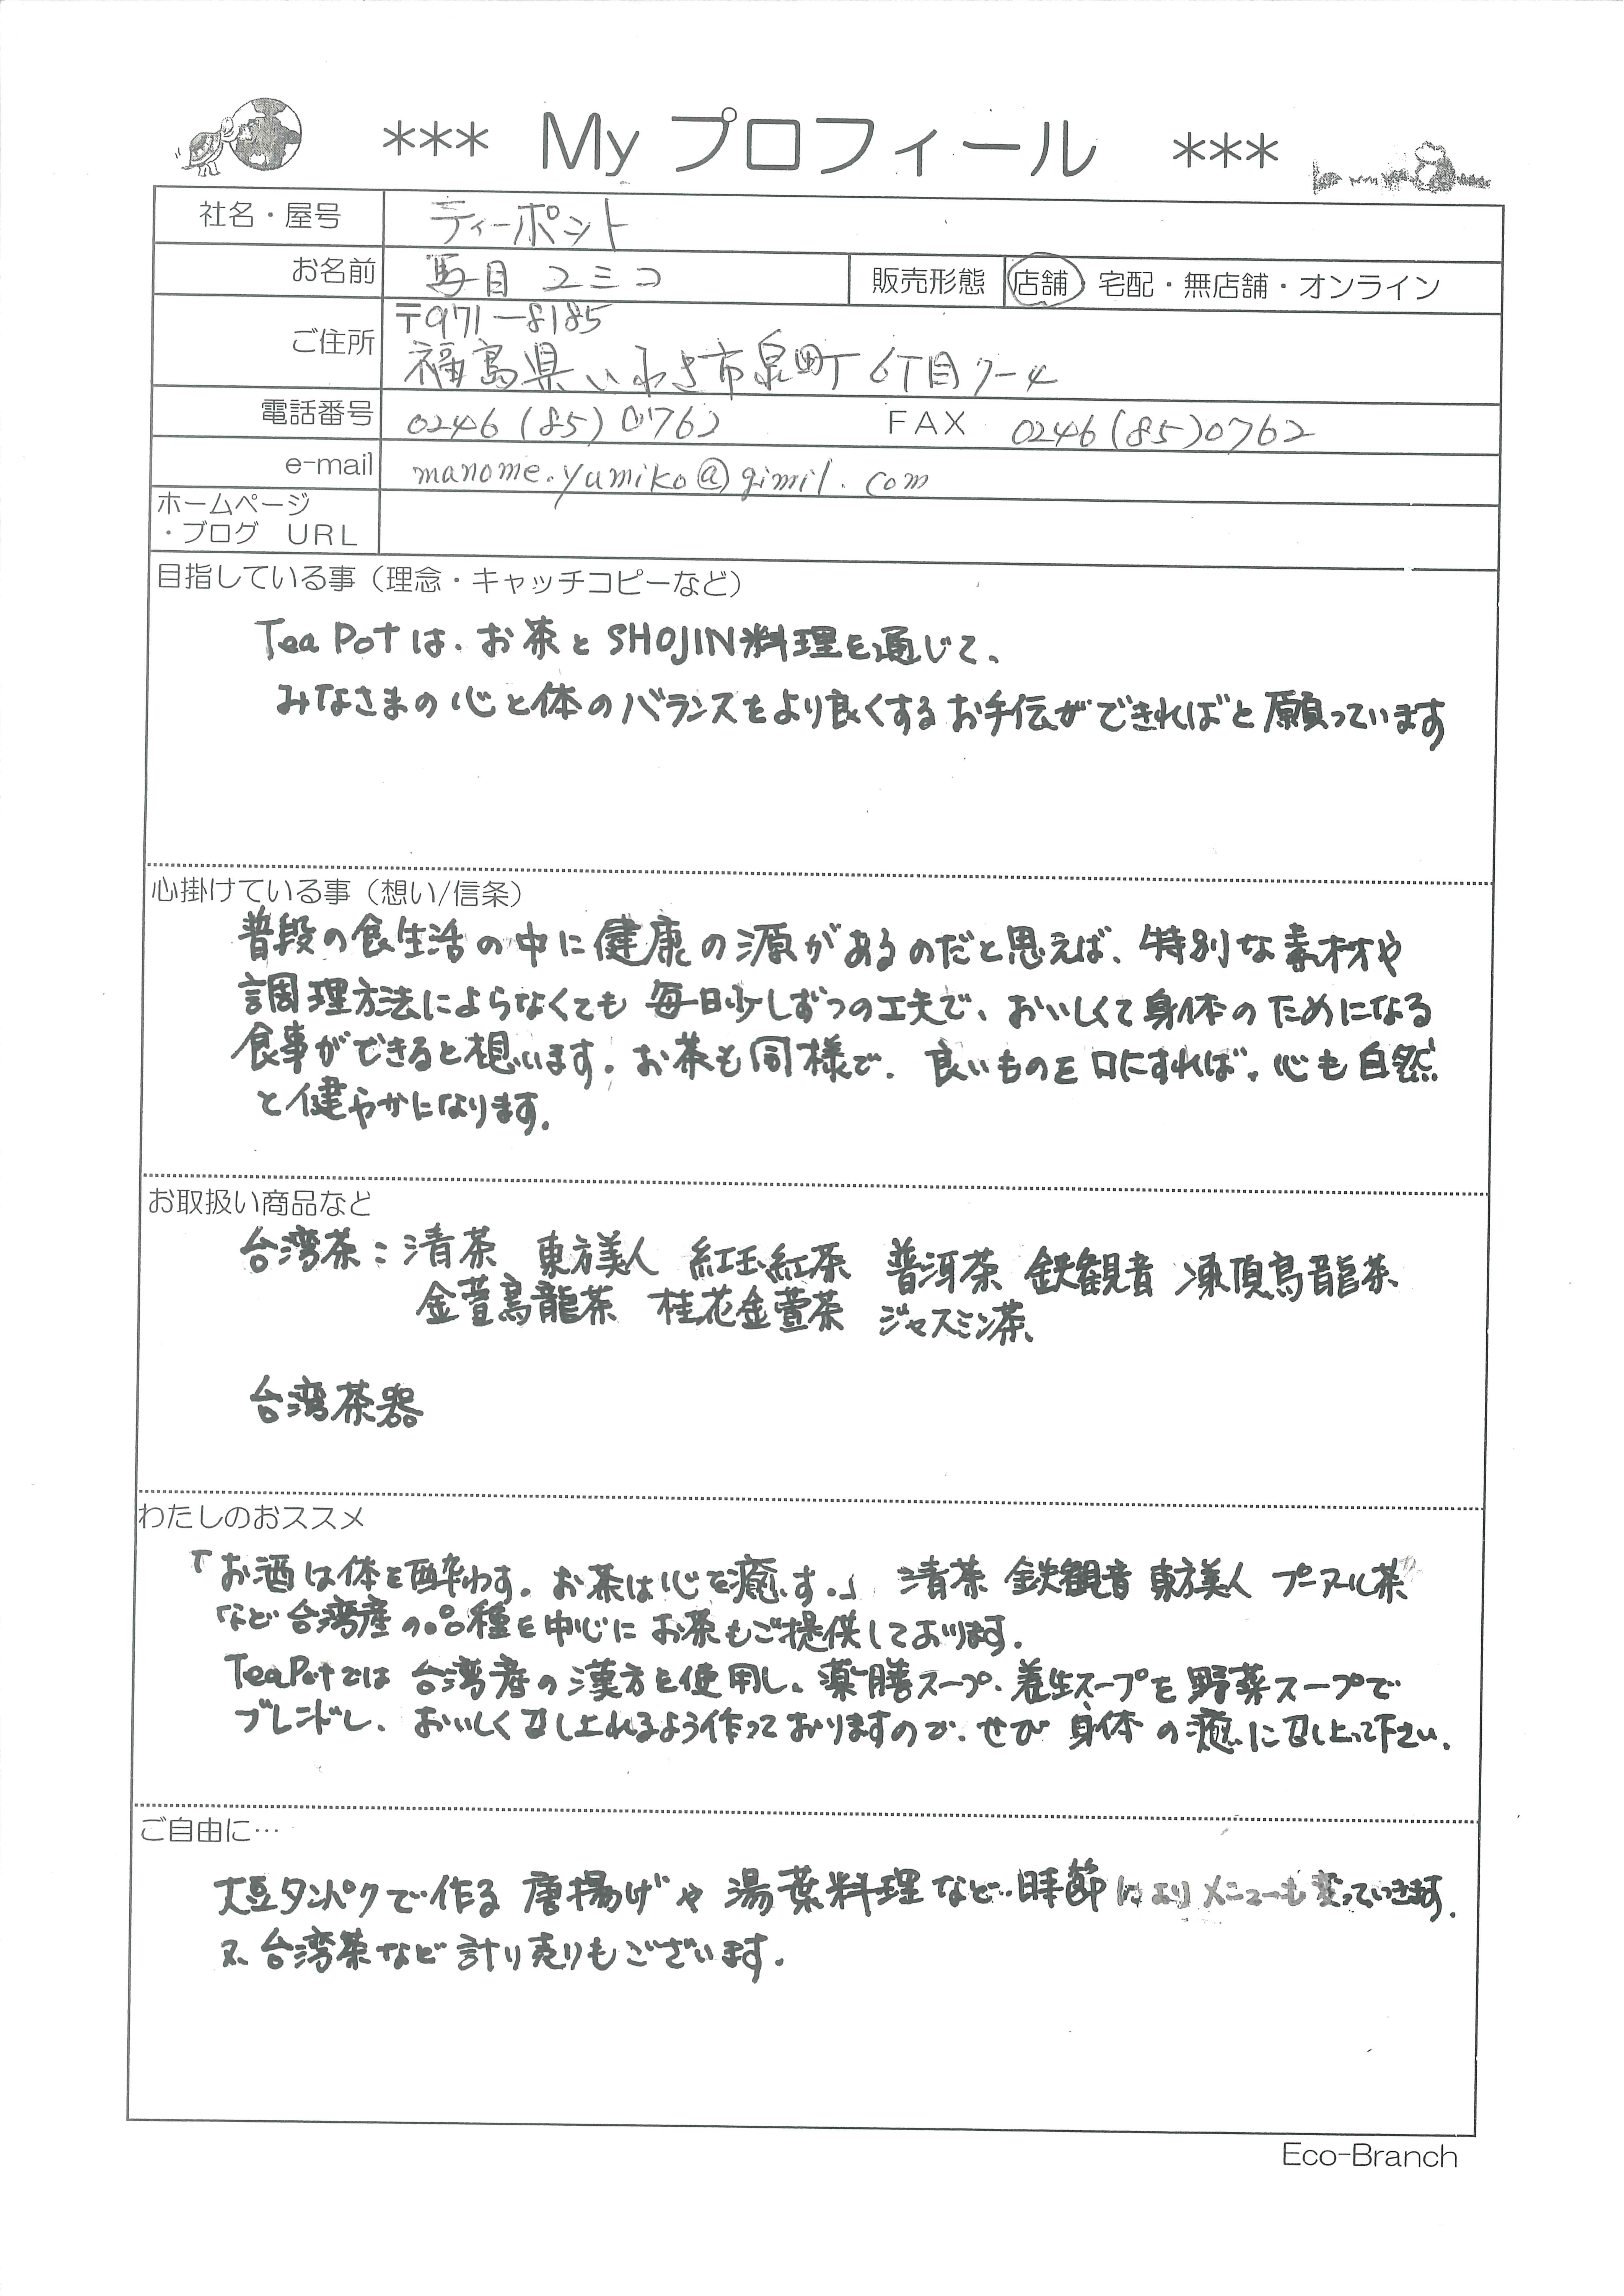 *** My プロフィール ***
社名・屋号 ティーポット
お名前 馬目 ユミコ 販売形態 店舗・宅配・無店舗・オンライン
ご住所 〒971-8185
福島県いわき市泉町6丁目7-4
電話番号 0246(85)0762 FAX 0246(85)0762
e-mail manome.yumiko@gimil.com
ホームページ
・ブログ URL
目指している事（理念・キャッチコピーなど）
Tea Potは、お茶とSHOJIN料理を通じて、
みなさまの心と体のバランスをより良くするお手伝ができればと願っています
心掛けている事（想い/信条）
普段の食生活の中に健康の源があるのだと思えば、特別な素材や
調理方法によらなくても毎日少しずつの工夫で、おいしくて身体のためになる
食事ができると想います。お茶も同様で、良いものを口にすれば、心も自然
と健やかになります。
お取扱い商品など
台湾茶：清茶 東方美人 紅玉紅茶 普洱茶 鉄観音 凍頂烏龍茶
金萱烏龍茶 桂花金萱茶 ジャスミン茶、
台湾茶器
わたしのおススメ
「お酒は体を酔わす。お茶は心を癒す。」 清茶 鉄観音 東方美人 プーアール茶
など台湾産の品種を中心にお茶もご提供しております。
TeaPotでは台湾産の漢方を使用し、薬膳スープ、養生スープを野菜スープで
ブレンドし、おいしく召し上れるよう作っておりますので、ぜひ身体の癒に召し上って下さい。
ご自由に…
大豆タンパクで作る唐揚げや湯葉料理など…時節によりメニューも変っていきます。
又、台湾茶など計り売りもございます。
Eco-Branch